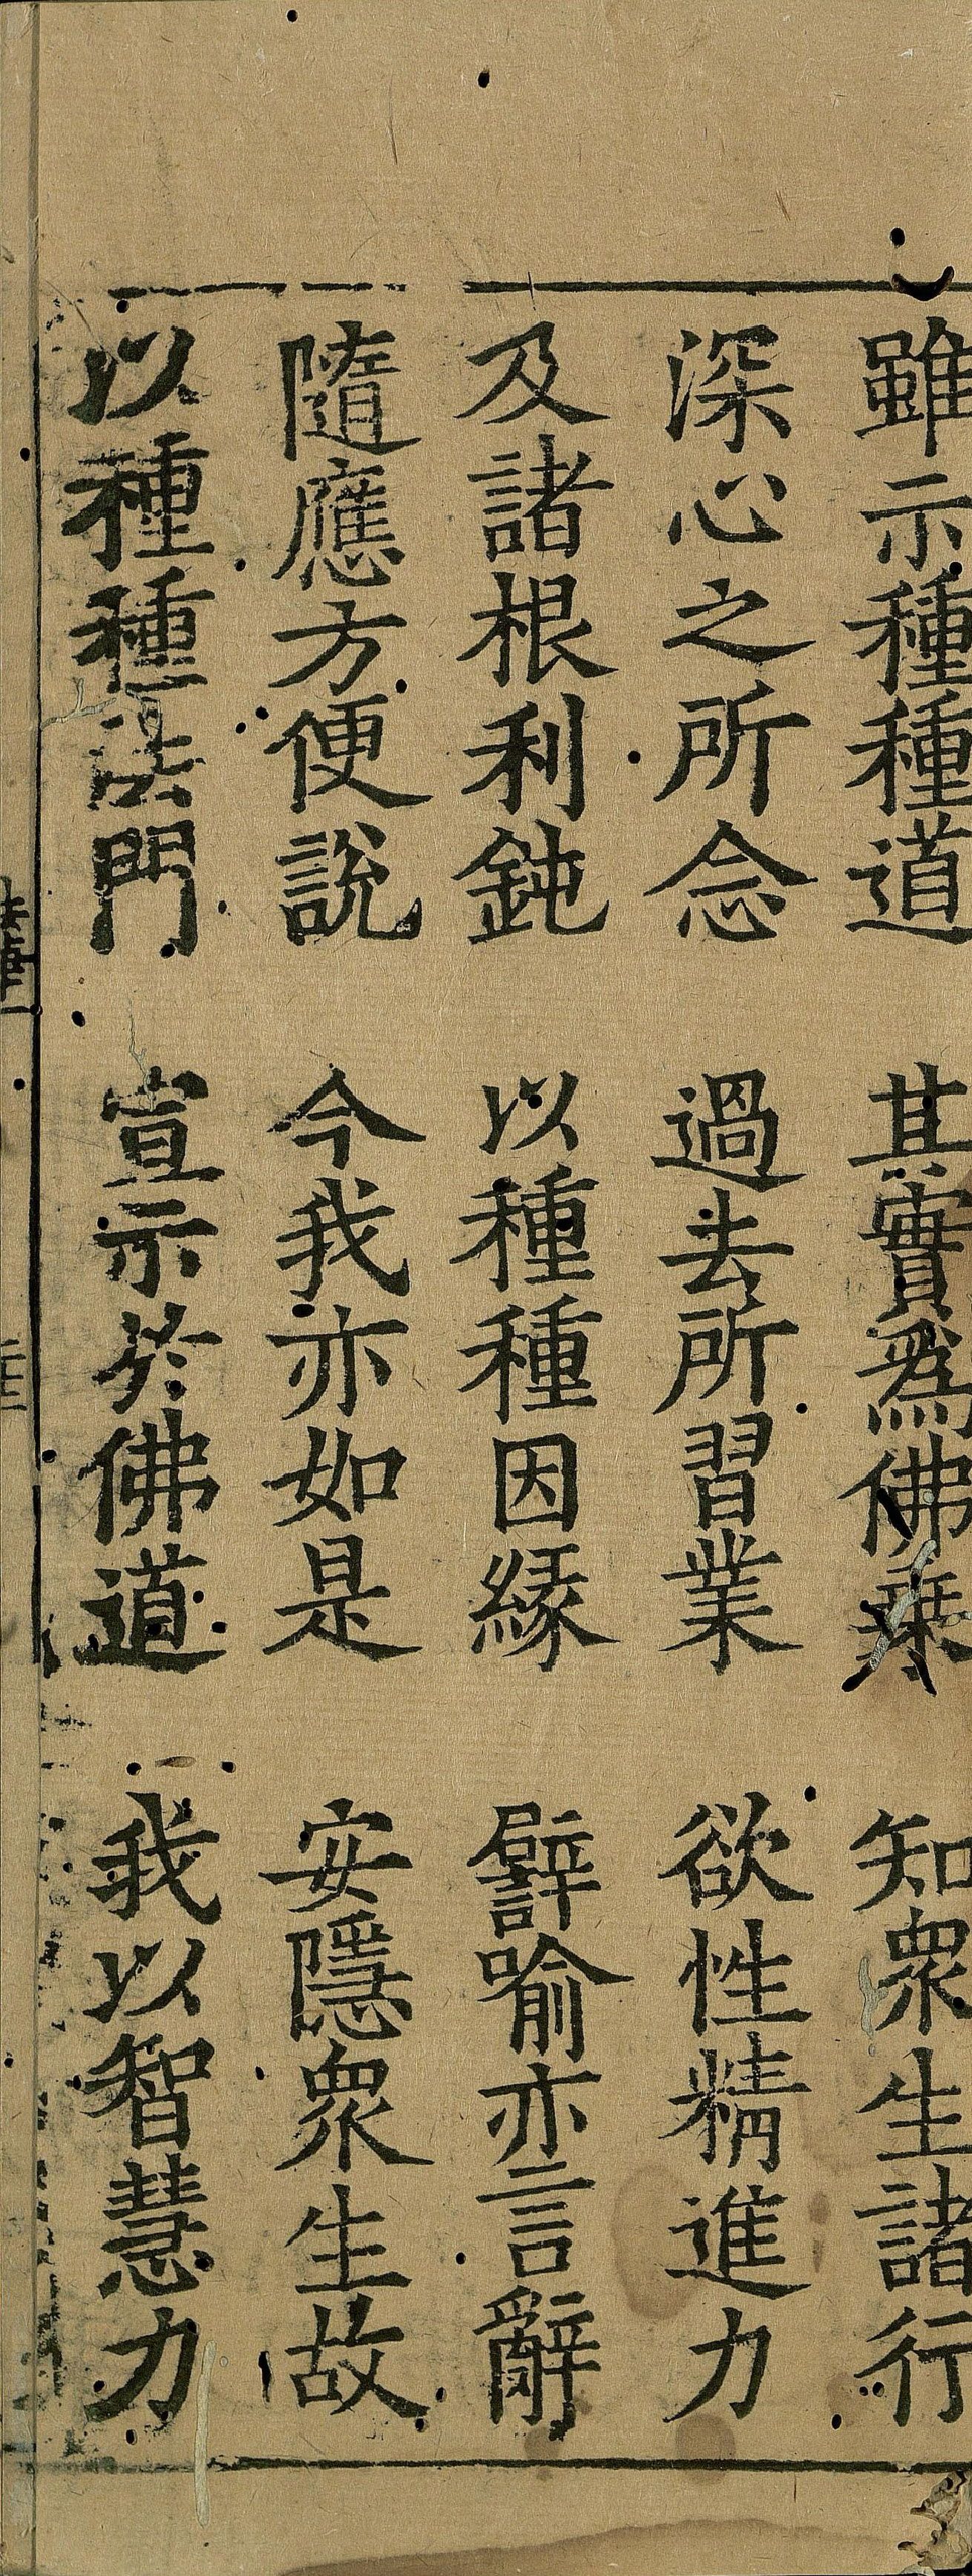 雖示種種道　其實爲佛乗　知衆生諸行
深心之所念　過去所習業　欲性精進力
及諸根利鈍　以種種因緣　譬喻亦言辭
隨應方便說　今我亦如是　安隱衆生故
以種種法門　宣示於佛道　我以智慧力